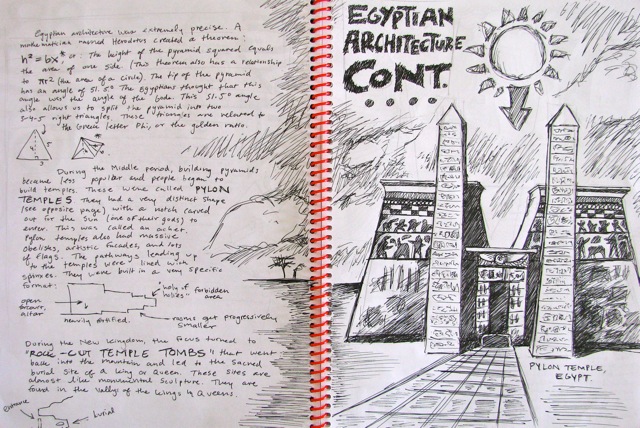 Egyptian architecture was extremely precise. A
mathematician named Herodotus created a theorem:
h² = bx* or: The height of the pyramid squared equals
the area of one side. (This theorem also has a relationship
to πr² (the area of a circle). The tip of the pyramid
has an angle of 51.5° The Egyptians thought that this
angle was the angle of the Gods. This 51.5° angle
also allows us to split the pyramid into two
3-4-5 right triangles. These triangles are related to
the Greek letter Phi, or the golden ratio.
During the Middle period, building pyramids
became less popular and people began to
build temples. These were called PYLON
TEMPLES They had a very distinct shape
(see opposite page) with a notch carved
out for the Sun (one of their gods) to
enter. This was called an
Pylon temples also had massive
obelisks, artistic facades, and lots
of flags. The pathways leading up
to the temples were lined with
sphinxes. They were built in a very specific
format:
"holy of forbidden
holies" area
open
altar
rooms get progressively
smaller
heavily fortified.
During the New Kingdom, the focus turned to
"ROCK-CUT TEMPLE TOMBS" that went
back into the mountain and led to the sacred
burial site of a King or Queen. These sites are
almost like monumental sculpture. They are
found in the Valleys of the Kings & Queens.
entrance
burial
EGYPTIAN
ARCHITECTURE
CONT.
PYLON TEMPLE,
EGYPT.